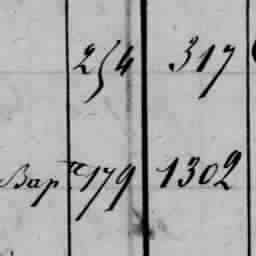 254 317
Bapte 179 1302